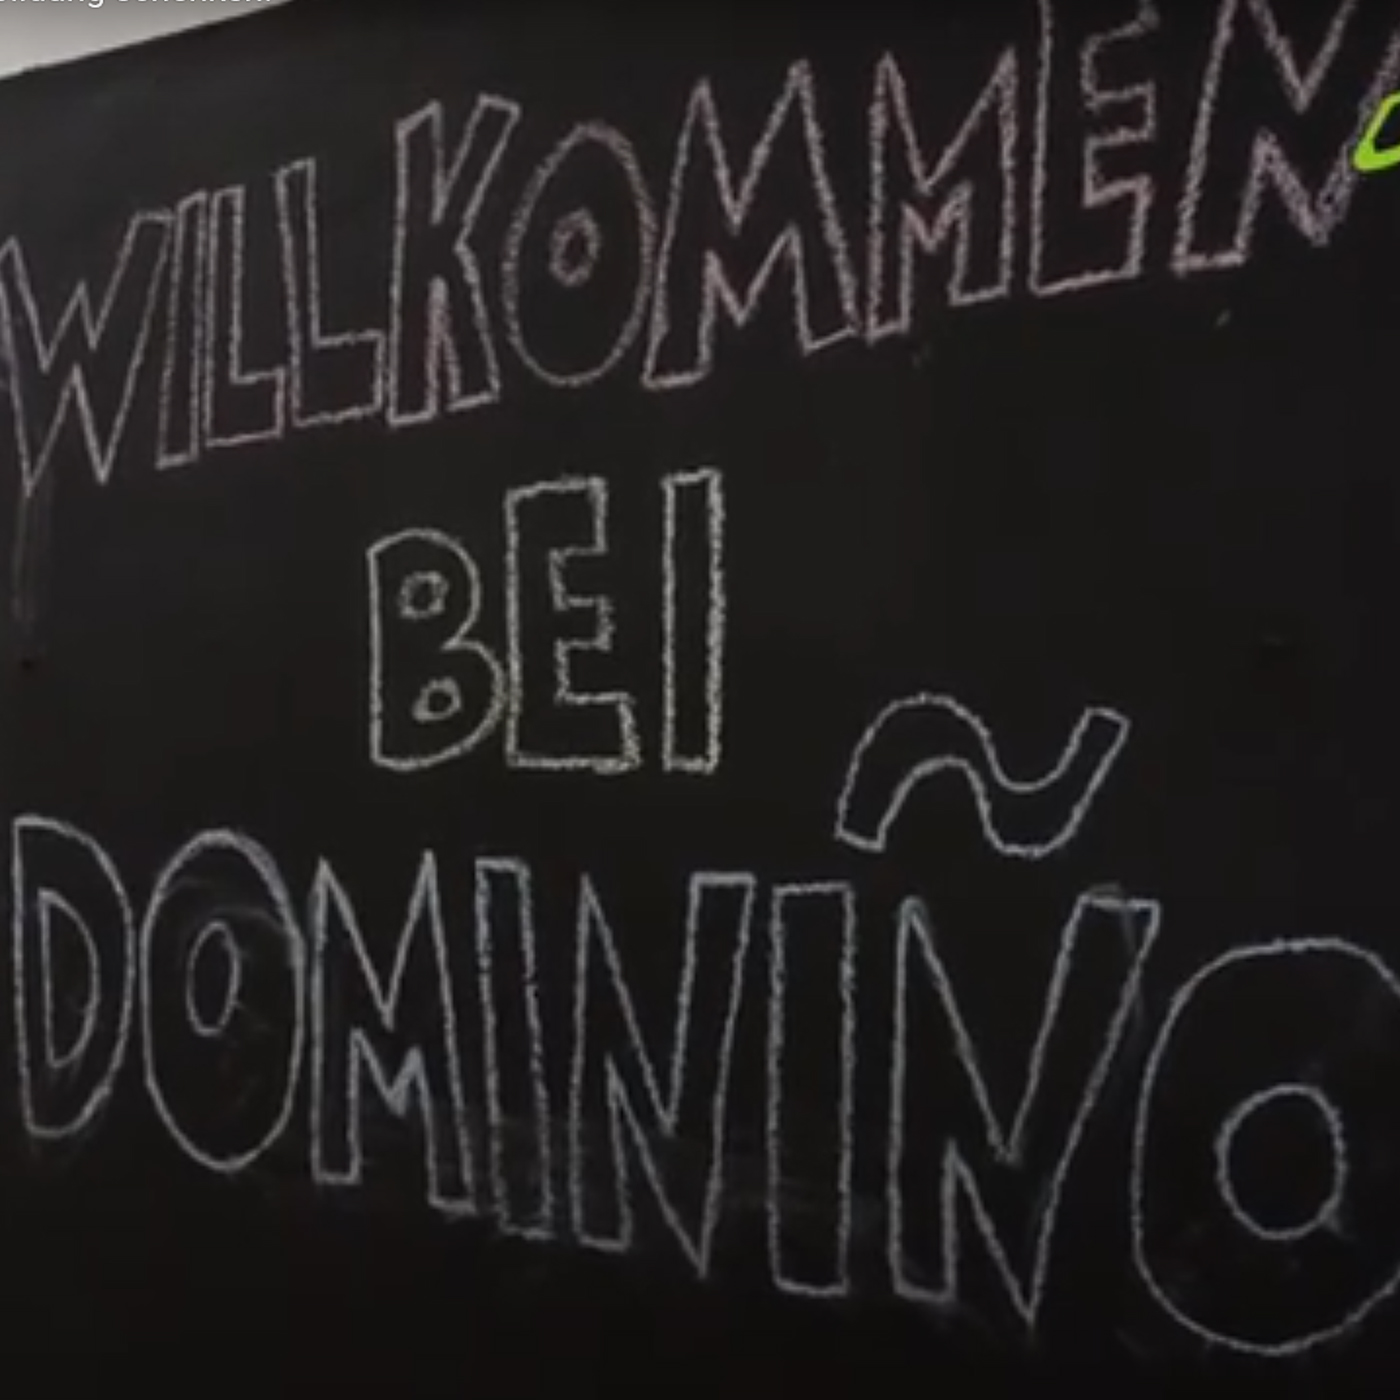 WILLKOMMEN
BEI
DOMINIÑO